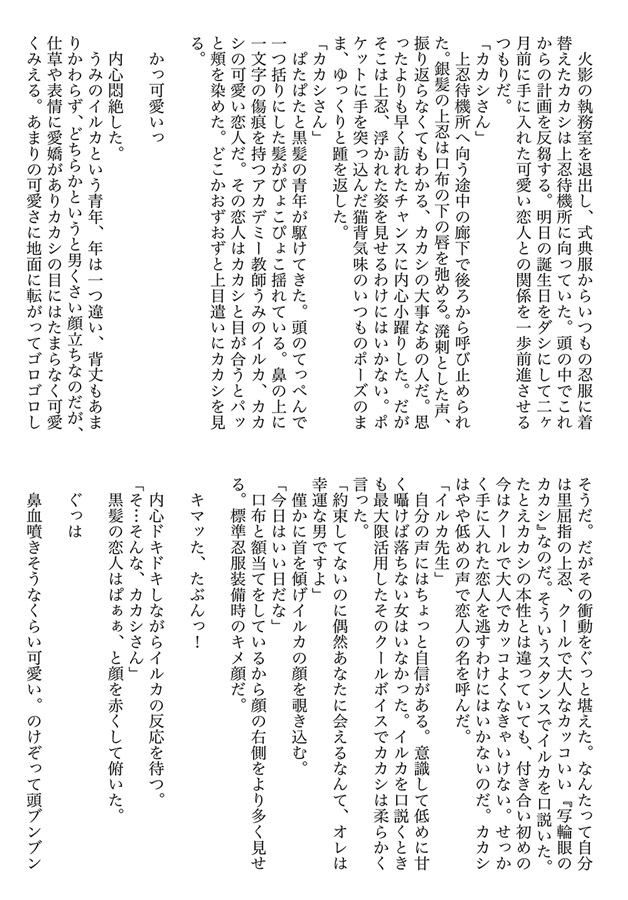 火影の執務室を退出し、式典服からいつもの忍服に着
替えたカカシは上忍待機所に向っていた。頭の中でこれ
からの計画を反芻する。明日の誕生日をダシにして二ヶ
月前に手に入れた可愛い恋人との関係を一歩前進させる
つもりだ。
「カカシさん」
　上忍待機所へ向う途中の廊下で後ろから呼び止められ
た。銀髪の上忍は口布の下の唇を弛める。溌剌とした声、
振り返らなくてもわかる、カカシの大事なあの人だ。思
ったよりも早く訪れたチャンスに内心小躍りした。だが
そこは上忍、浮かれた姿を見せるわけにはいかない。ポ
ケットに手を突っ込んだ猫背気味のいつものポーズのま
ま、ゆっくりと踵を返した。
「カカシさん」
　ぱたぱたと黒髪の青年が駆けてきた。頭のてっぺんで
一つ括りにした髪がぴょこぴょこ揺れている。鼻の上に
一文字の傷痕を持つアカデミー教師うみのイルカ、カカ
シの可愛い恋人だ。その恋人はカカシと目が合うとパッ
と頬を染めた。どこかおずおずと上目遣いにカカシを見
る。
　かっ可愛いっ
　内心悶絶した。
　うみのイルカという青年、年は一つ違い、背丈もあま
りかわらず、どちらかというと男くさい顔立ちなのだが、
仕草や表情に愛嬌がありカカシの目にはたまらなく可愛
くみえる。あまりの可愛さに地面に転がってゴロゴロし
そうだ。だがその衝動をぐっと堪えた。なんたって自分
は里屈指の上忍、クールで大人なカッコいい『写輪眼の
カカシ』なのだ。そういうスタンスでイルカを口説いた。
たとえカカシの本性とは違っていても、付き合い初めの
今はクールで大人でカッコよくなきゃいけない。せっか
く手に入れた恋人を逃すわけにはいかないのだ。カカシ
はやや低めの声で恋人の名を呼んだ。
「イルカ先生」
　自分の声にはちょっと自信がある。意識して低めに甘
く囁けば落ちない女はいなかった。イルカを口説くとき
も最大限活用したそのクールボイスでカカシは柔らかく
言った。
「約束してないのに偶然あなたに会えるなんて、オレは
幸運な男ですよ」
　僅かに首を傾げイルカの顔を覗き込む。
「今日はいい日だな」
　口布と額当てをしているから顔の右側をより多く見せ
る。標準忍服装備時のキメ顔だ。
　キマッた、たぶんっ！
　内心ドキドキしながらイルカの反応を待つ。
「そ…そんな、カカシさん」
　黒髪の恋人はぱぁぁ、と顔を赤くして俯いた。
　ぐっは
　鼻血噴きそうなくらい可愛い。のけぞって頭ブンブン